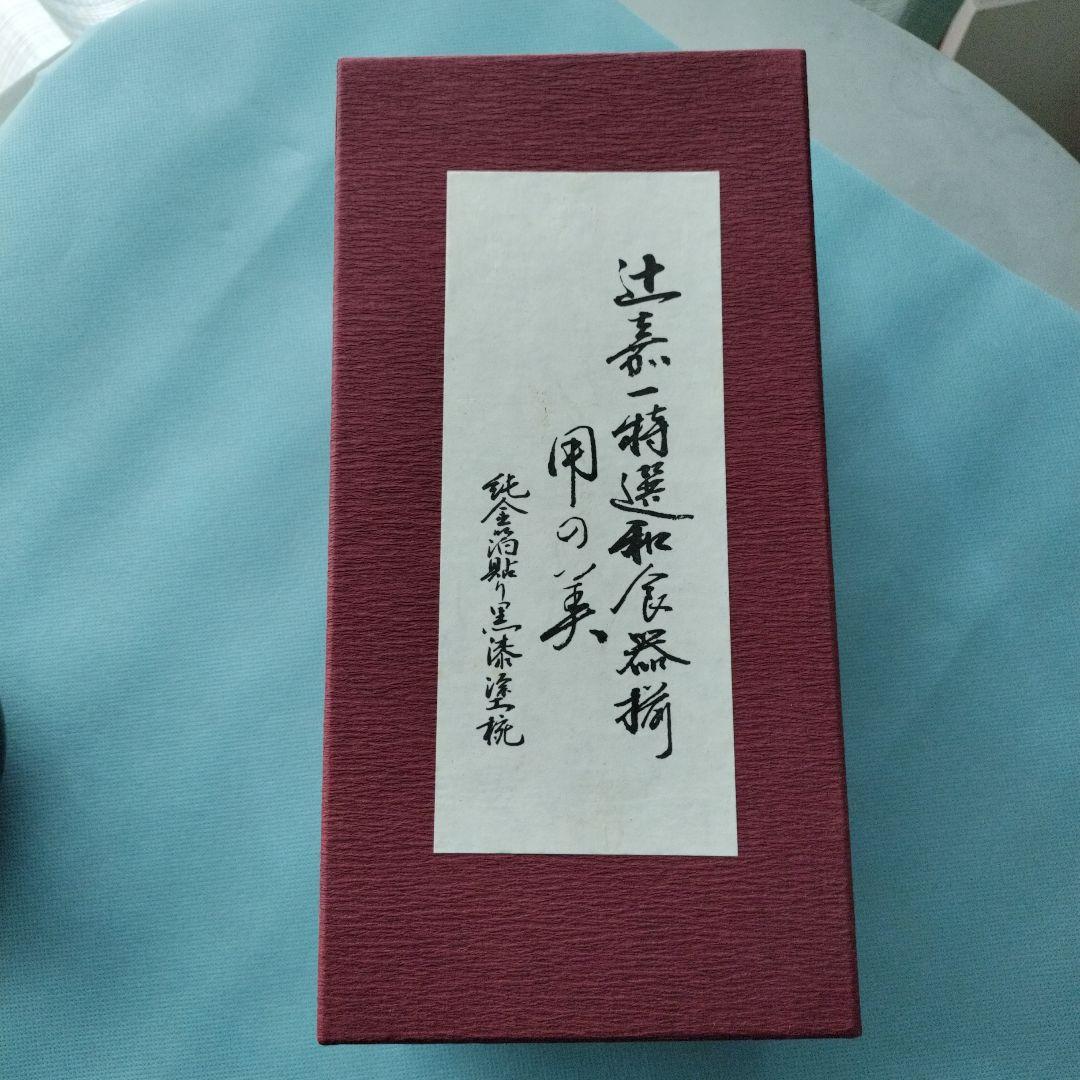 辻嘉一特選和食器揃
用の美
純金箔貼り黒漆塗椀